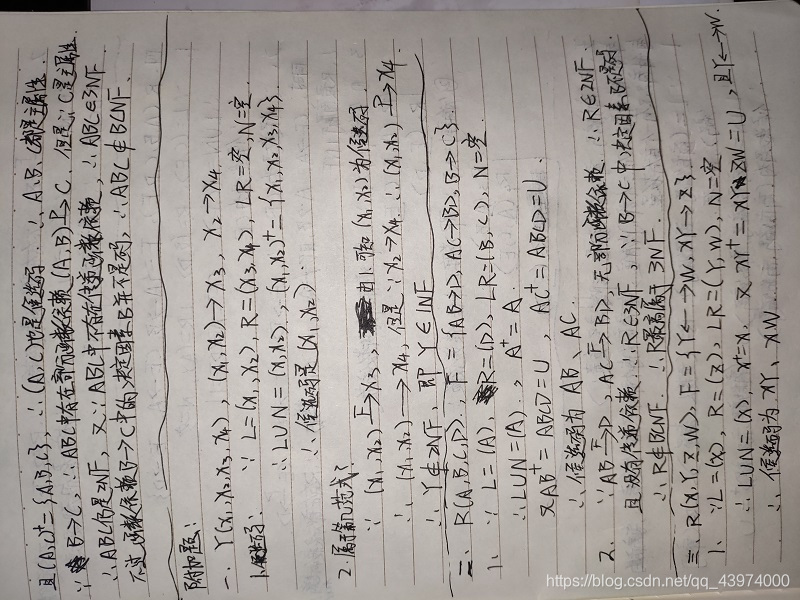 且(A,C)⁺={A,B,C}, ∴(A,C)也是候选码. ∴A、B、C都是主属性.
∵B→C, ∴ABC中存在部分函数依赖(A,B)P→C. 但是∵C是主属性.
∴ABC仍是2NF, 又∵ABC中不存在传递函数依赖, ∴ABC∈3NF
不过函数依赖B→C中的决定因素B并不是码, ∴ABC∉BCNF.
附加题:
一. Y(X₁,X₂,X₃,X₄), (X₁,X₂)→X₃, X₂→X₄
1.候选码: ∵L=(X₁,X₂), R=(X₃,X₄), LR=空, N=空.
∴LUN=(X₁,X₂), (X₁,X₂)⁺={X₁,X₂,X₃,X₄}
∴候选码是(X₁,X₂).
2.属于第几范式?
∵(X₁,X₂)F→X₃, 由1.可知(X₁,X₂)为候选码.
∴(X₁,X₂)→X₄, 但是∵X₂→X₄ ∴(X₁,X₂)P→X₄.
∴Y∉2NF, 即Y∈1NF
二. R(A,B,C,D), F={AB→D, AC→BD, B→C}
1. ∵L=(A), R=(D), LR=(B,C), N=空.
∴LUN=(A), A⁺=A.
又AB⁺=ABCD=U, AC⁺=ABCD=U.
∴候选码为 AB、AC
2. ∵ABF→D, ACF→BD, 无部分函数依赖. ∴R∈2NF.
且没有传递依赖, ∴R∈3NF, ∵B→C中,决定因素B不是码
∴R∉BCNF. ∴R最高属于3NF.
三. R(X,Y,Z,W), F={Y←→W, XY→Z}
1. ∵L=(X), R=(Z), LR=(Y,W), N=空
∴LUN=(X), X⁺=X, 又XY⁺=XYZW=U, 且Y←→W.
∴候选码为 XY、XW
https://blog.csdn.net/qq_43974000